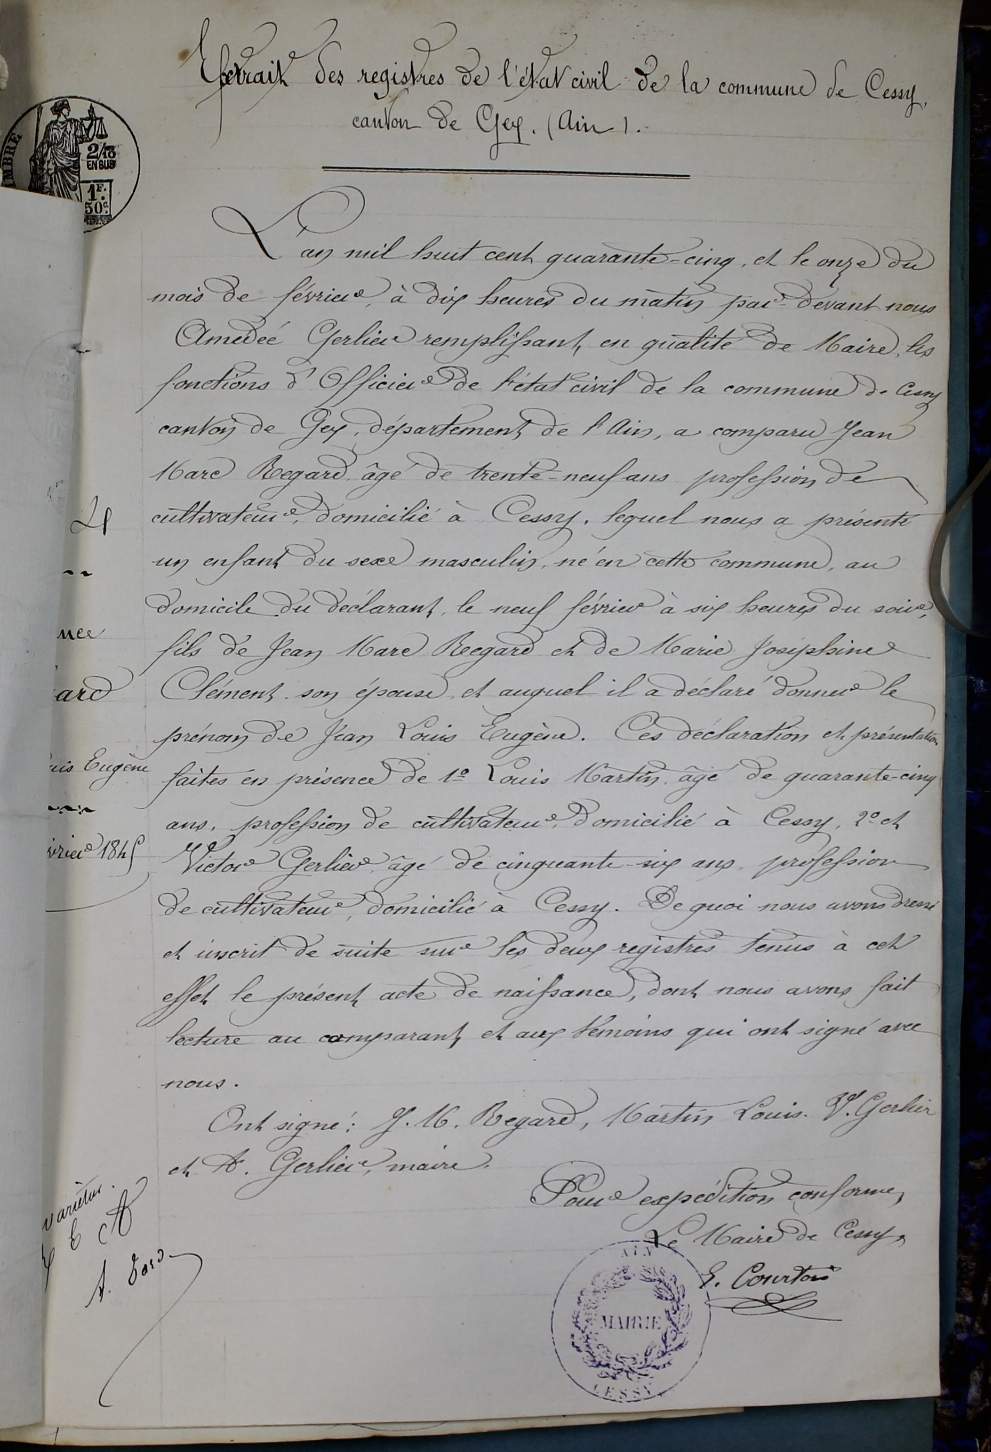 Extrait des registres de l'état civil de la commune de Cessy,
canton de Gex. (Ain).
MBRE
2/10
EN SUS
1F.
50c.
L'an mil huit cent quarante-cinq, et le onze du
mois de février, à dix heures du matin, par-devant nous
Amédée Gerlier remplissant, en qualité de Maire, les
fonctions d'Officier de l'état civil de la commune de Cessy
canton de Gex, département de l'Ain, a comparu Jean
Marc Regard âgé de trente-neuf ans profession de
cultivateur, domicilié à Cessy, lequel nous a présenté
un enfant du sexe masculin, né en cette commune, au
domicile du déclarant, le neuf février à six heures du soir,
fils de Jean Marc Regard et de Marie Joséphine
Clément son épouse et auquel il a déclaré donner le
prénom de Jean Louis Eugène. Ces déclaration et présentation
faites en présence de 1º Louis Martin âgé de quarante-cinq
ans, profession de cultivateur, domicilié à Cessy, 2º et
Victor Gerlier âgé de cinquante-six ans, profession
de cultivateur, domicilié à Cessy. De quoi nous avons dressé
et inscrit de suite sur les deux registres tenus à cet
effet le présent acte de naissance, dont nous avons fait
lecture au comparant et aux témoins qui ont signé avec
nous.
Ont signé: J. M. Regard, Martin Louis. Vr. Gerlier
et A. Gerlier, maire.
Pour expédition conforme,
Le Maire de Cessy,
E. Courtois
AIN
MAIRIE
CESSY
nce
ard
uis Eugène
vrier 1845
varietur.